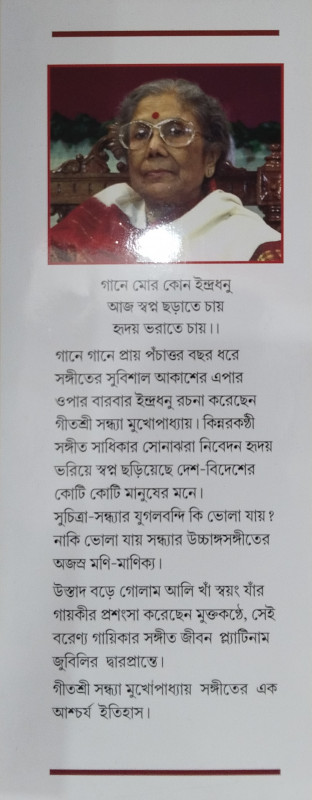 গানে মোর কোন ইন্দ্রধনু
আজ স্বপ্ন ছড়াতে চায়
হৃদয় ভরাতে চায়।।
গানে গানে প্রায় পঁচাত্তর বছর ধরে
সঙ্গীতের সুবিশাল আকাশের এপার
ওপার বারবার ইন্দ্রধনু রচনা করেছেন
গীতশ্রী সন্ধ্যা মুখোপাধ্যায়। কিন্নরকণ্ঠী
সঙ্গীত সাধিকার সোনাঝরা নিবেদন হৃদয়
ভরিয়ে স্বপ্ন ছড়িয়েছে দেশ-বিদেশের
কোটি কোটি মানুষের মনে।
সুচিত্রা-সন্ধ্যার যুগলবন্দি কি ভোলা যায়?
নাকি ভোলা যায় সন্ধ্যার উচ্চাঙ্গসঙ্গীতের
অজস্র মণি-মাণিক্য।
উস্তাদ বড়ে গোলাম আলি খাঁ স্বয়ং যাঁর
গায়কীর প্রশংসা করেছেন মুক্তকণ্ঠে, সেই
বরেণ্য গায়িকার সঙ্গীত জীবন প্ল্যাটিনাম
জুবিলির দ্বারপ্রান্তে।
গীতশ্রী সন্ধ্যা মুখোপাধ্যায় সঙ্গীতের এক
আশ্চর্য ইতিহাস।